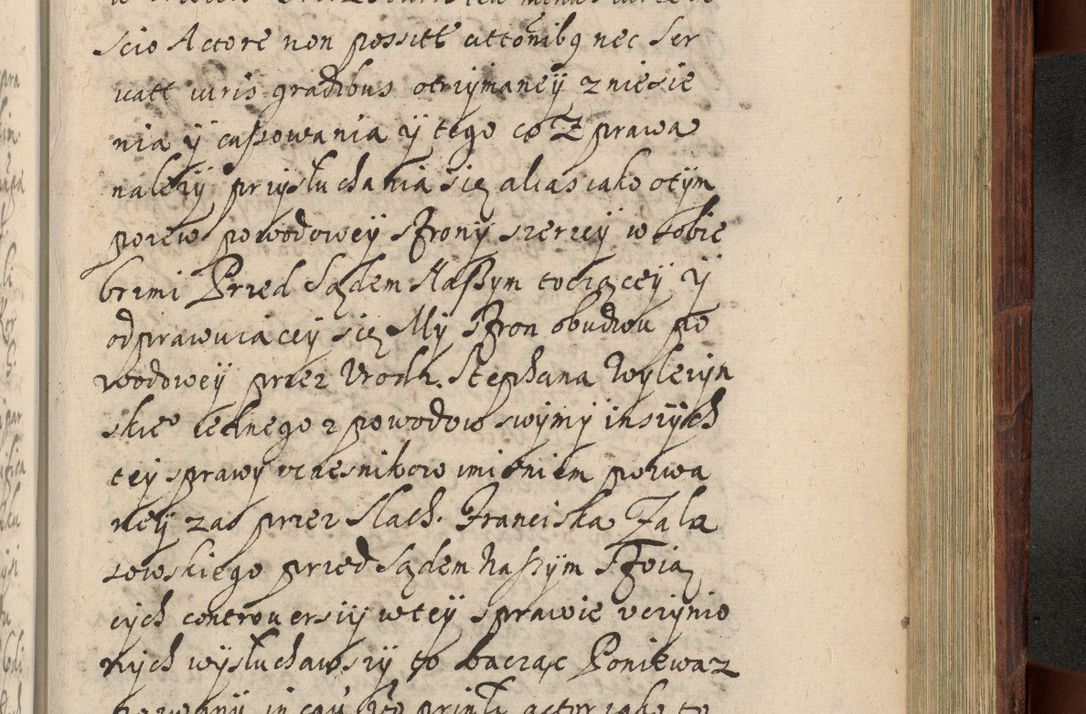 scio Actore non possitt attonibq nec ser
vatt iuris gradibus otrzymaney zniesie
nia y cassowania y tego co z prawa
nalezy przysłuchania się alias iako otym
pozew powodowey strony szerzey w sobie
brzmi Przed Sądem Naszym toczącey y
odprawuiącey się My stron obudwu po
wodowey przez Urodz. Stephana Wylezyn
skie° iednego z powodow swym y inszych
tey sprawy uczesnikow imieniem pozwa
ney zas przez Slach. Franciska Zala
sowskiego przed Sądem naszym stoią
cych controversiy w tey sprawie uczynio
nych wysłuchawszy to bacząc Poniewaz